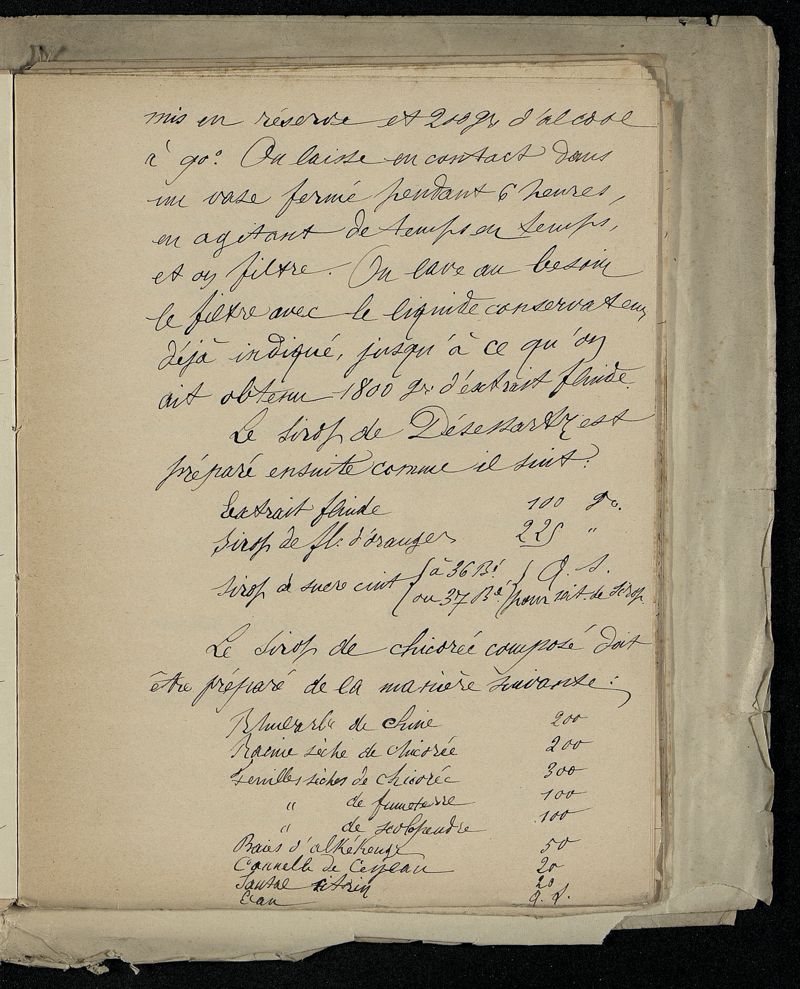 mis en réserve et 200 gr d'alcool
à 90°. On laisse en contact dans
un vase fermé pendant 6 heures,
en agitant de temps en temps,
et on filtre. On lave au besoin
le filtre avec le liquide conservateur
déjà indiqué, jusqu'à ce qu'on
ait obtenu 1800 gr d'extrait fluide.
Le sirop de Désessartz est
préparé ensuite comme il suit:
Extrait fluide 100 gr.
Sirop de fl. d'oranger 225 "
Sirop de sucre cuit { à 36 Bé } Q. S.
ou 37 Bé pour de sirop
Le sirop de chicorée composé doit
être préparé de la manière suivante:
Rhubarbe de Chine 200
Racine sèche de chicorée 200
Feuilles sèches de chicorée 300
" de fumeterre 100
" de scolopendre 100
Baies d'alkékenge 50
Cannelle de Ceylan 20
Santal citrin 20
Eau q. s.